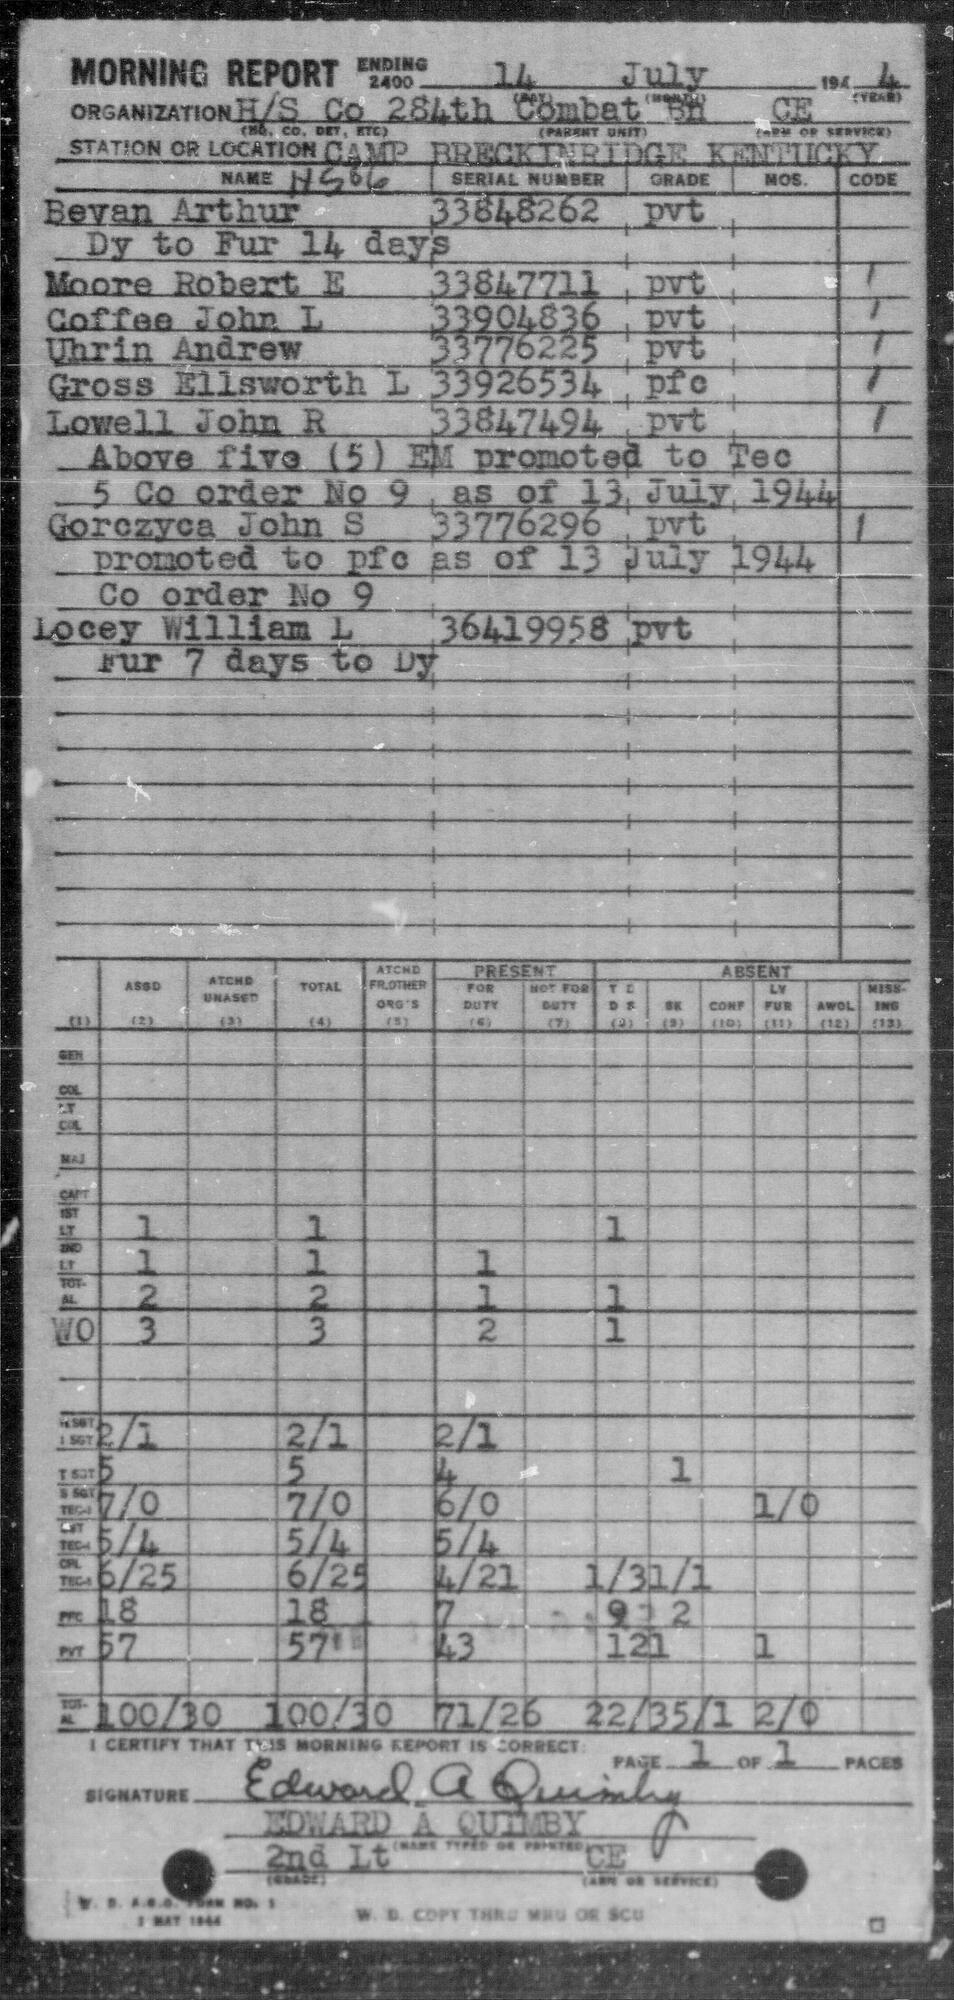 MORNING REPORT ENDING 2400 14 July 194 4
(DAY) (MONTH) (YEAR)
ORGANIZATION H/S Co 284th Combat Bn CE
(NO. CO, DET, ETC) (PARENT UNIT) (ARM OR SERVICE)
STATION OR LOCATION CAMP BRECKINRIDGE KENTUCKY
NAME SERIAL NUMBER GRADE MOS. CODE
Bevan Arthur 33848262 pvt
Dy to Fur 14 days
Moore Robert E 33847711 pvt /
Coffee John L 33904836 pvt /
Uhrin Andrew 33776225 pvt /
Gross Ellsworth L 33926534 pfc /
Lowell John R 33847494 pvt /
Above five (5) EM promoted to Tec
5 Co order No 9 as of 13 July 1944
Gorczyca John S 33776296 pvt /
promoted to pfc as of 13 July 1944
Co order No 9
Locey William L 36419958 pvt
Fur 7 days to Dy
PRESENT ABSENT
(1) ASSD (2) ATCHD UNASGD (3) TOTAL (4) ATCHD FR.OTHER ORG'S (5) FOR DUTY (6) NOT FOR DUTY (7) T D D S SK (9) CONF (10) LV FUR (11) AWOL (12) MISSING (13)
GEN
COL
LT COL
MAJ
CAPT
1ST LT 1 1 1
2ND LT 1 1 1
TOTAL 2 2 1 1
WO 3 3 2 1
1 SGT 2/1 2/1 2/1
T SGT 5 5 4 1
S SGT TEC-3 7/0 7/0 6/0 1/0
SGT TEC-4 5/4 5/4 5/4
CPL TEC-5 6/25 6/25 4/21 1/31/1
PFC 18 18 7 9 2
PVT 57 57 43 121 1
TOTAL 100/30 100/30 71/26 22/35/1 2/0
I CERTIFY THAT THIS MORNING REPORT IS CORRECT:
PAGE 1 OF 1 PAGES
SIGNATURE Edward A Quimby
EDWARD A QUIMBY
(NAME TYPED OR PRINTED)
2nd Lt CE
(GRADE) (ARM OR SERVICE)
W. D. A.G.O. FORM NO. 1
1 MAY 1944
W. D. COPY THRU MRU OR SCU